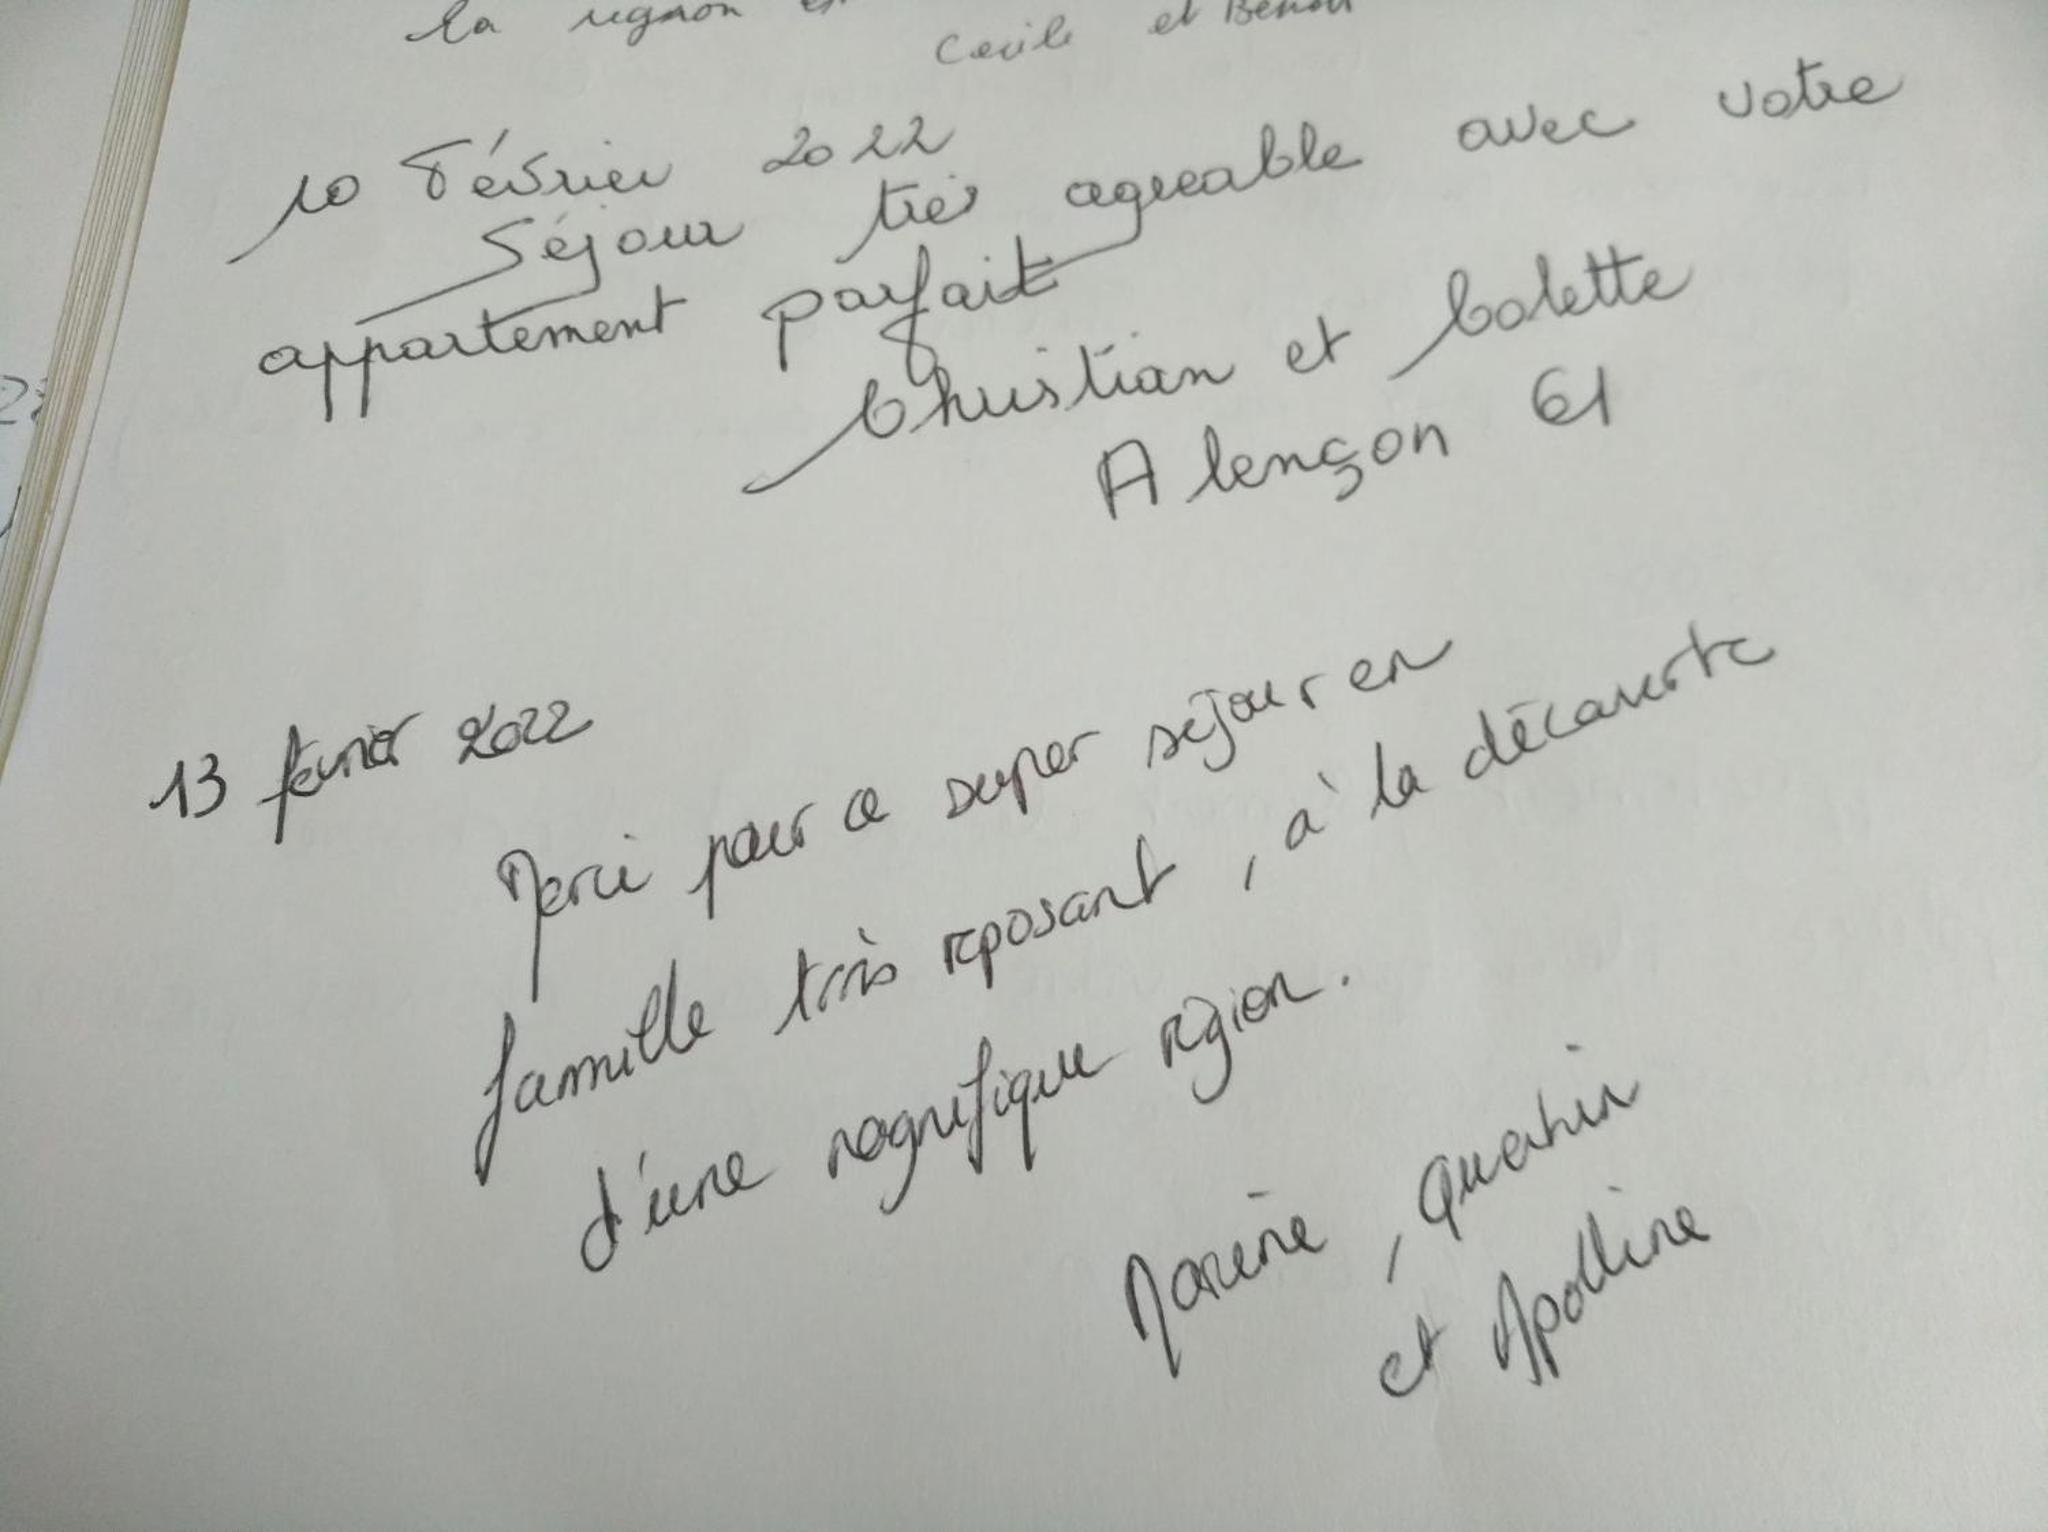 la région
Cecile et Benoit
10 Février 2022
Séjour très agreable avec votre
appartement parfait
Christian et Colette
Alençon 61
13 février 2022
Merci pour ce super séjour en
famille très reposant, à la découverte
d'une magnifique région.
Marine, Quentin
et Apolline